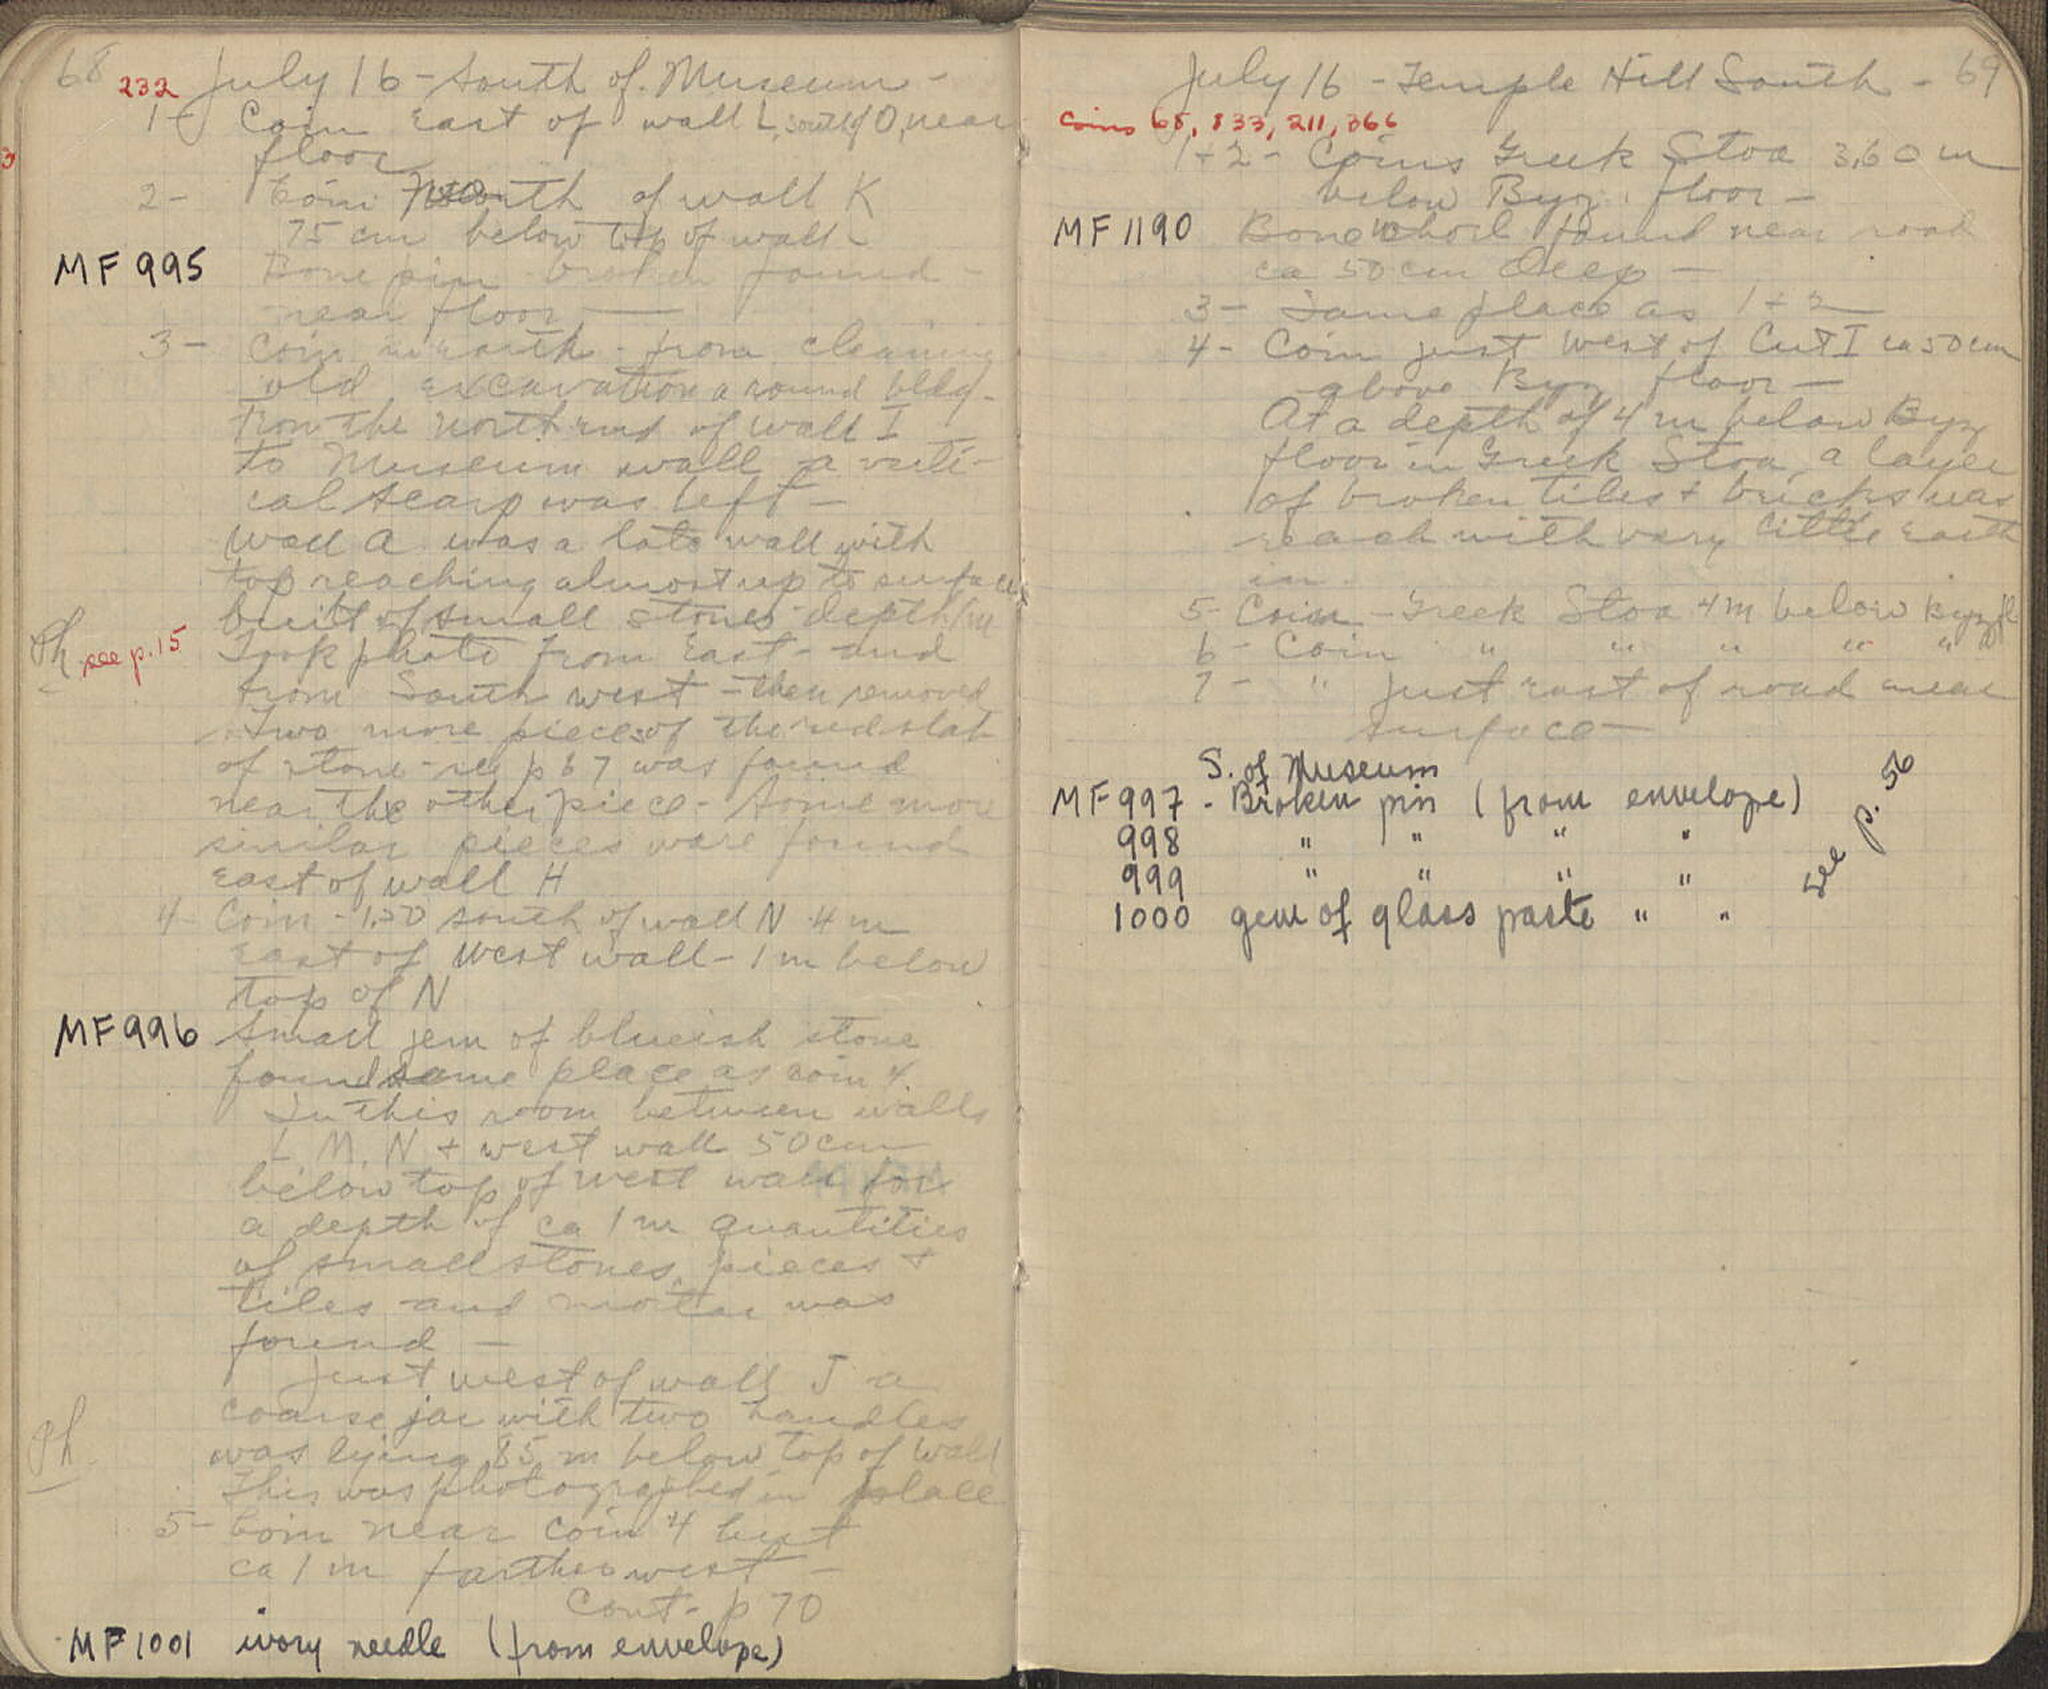 68 232 July 16 - South of Museum -
1- Coin East of wall L, south of O, near
floor
2- Coin North of wall K
75 cm below top of wall -
MF 995 Bone pin broken found -
near floor —
3- Coin in earth - from cleaning
old excavation around bldg -
From the north end of wall I
to Museum wall a verti-
cal scarp was left -
Wall A was a late wall with
top reaching almost up to surface
built of small stones - depth 1m
Ph see p. 15 Took photo from East - and
from South west - then removed
Two more pieces of the red slab
of stone - see p 67 was found
near the other piece - Some more
similar pieces were found
East of wall H
4- Coin - 1.50 south of wall N 4 m
East of West wall - 1 m below
top of N
MF 996 Small jem of blueish stone
found same place as coin 4.
In this room between walls
L M, N + west wall 50 cm
below top of west wall for
a depth of ca 1 m quantities
of small stones, pieces +
tiles and mortar was
found —
Just west of wall J a
coarse jar with two handles
Ph was lying .85 m below top of wall
This was photographed in place
5- Coin near coin 4 but
ca 1 m farther west —
Cont - p 70
MF 1001 ivory needle (from envelope)
July 16 - Temple Hill South - 69
Coins 68, 833, 211, 366
1 + 2 - Coins Greek Stoa 3,60 m
below Byz. floor -
MF 1190 Bone whorl found near road
ca 50 cm deep —
3- Same place as 1 + 2
4- Coin just west of Cut I ca 50 cm
above Byz floor —
At a depth of 4 m below Byz
floor in Greek Stoa, a layer
of broken tiles + bricks was
reach with very little earth
in.
5- Coin - Greek Stoa 4 m below Byz fl
6- Coin " " " " " "
7- " just east of road near
surface —
S. of Museum
MF 997 - Broken pin (from envelope)
998 " " " "
999 " " " "
1000 gem of glass paste " "
see p. 56